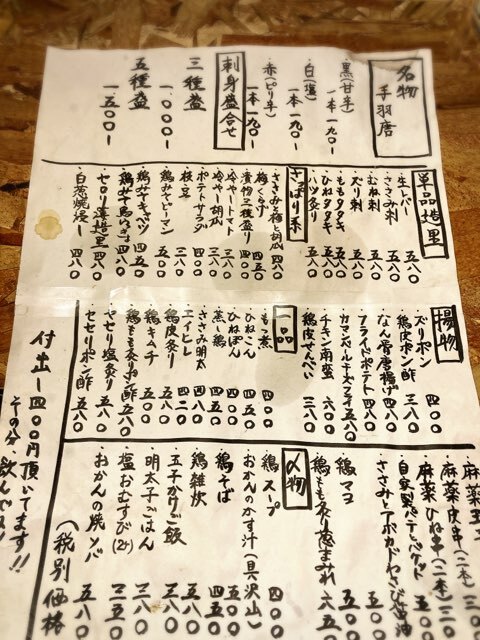 名物
手羽唐
黒(甘辛)
一本一九〇-
白(塩)
一本一九〇-
赤(ピリ辛)
一本一九〇-
刺身盛合せ
三種盛
一.〇〇〇-
五種盛
一.五〇〇-
・生レバー 五八〇
・ささみ刺 五八〇
・むね刺 五八〇
・ズリ刺 五八〇
・ももタタキ 五八〇
・ひねタタキ 五八〇
・ハツ炙り 五八〇
さっぱり系
・ささみと梅と胡瓜 四八〇
・梅くらげ 四五〇
・漬物三種盛り 四五〇
・冷やしトマト 三八〇
・冷やし胡瓜 三八〇
・ポテトサラダ 四八〇
・枝豆 三八〇
・鶏みそピーマン 五八〇
・鶏みそキャベツ 四五〇
・白葱焼浸し 四八〇
揚物
・ズリポン 四〇〇
・鶏皮ポン酢 三八〇
・なん骨唐揚げ 四八〇
・フライドポテト 四八〇
・チキン南蛮 六八〇
・鶏皮せんべい 三八〇
一品
・もつ煮 六〇〇
・ひねこん 五〇〇
・ひねぽん 五〇〇
・蒸し鶏 四五〇
・ささみ明太 五八〇
・エイヒレ 四八〇
・鶏皮炙り 四二〇
・鶏キムチ 五八〇
・鶏もも炙りポン酢 五八〇
・セセリ塩炙り 五八〇
・セセリポン酢 五八〇
麻薬皮串(二本)
麻薬ひね串(二本)
自家製パテとバケット
ささみとアボカドわさび醤油
鶏マヨ 五八〇
鶏もも炙り葱まみれ 六五〇
〆物
鶏スープ
おかんのかす汁(具沢山) 五五〇
鶏そば
鶏雑炊 五五〇
玉子かけご飯 三八〇
明太子ごはん 三八〇
塩おむすび(2ケ) 三五〇
おかんの焼メシ 五八〇
(税別価格
付出し四〇〇円頂いてます!!
その分